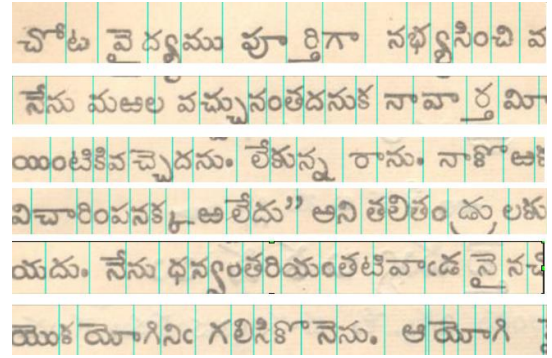 చోట వైద్యము పూర్తిగా నభ్యసించి వ
నేను మఱల వచ్చునంతదనుక నావార్త మీ
యింటికివచ్చెదను. లేకున్న రాను. నాకొఱకు
విచారింపనక్కఱలేదు” అని తలితండ్రులకు
యదు. నేను ధన్వంతరియంతటివాఁడనైనచో
యొకయోగినిఁ గలిసికొనెను. ఆయోగి